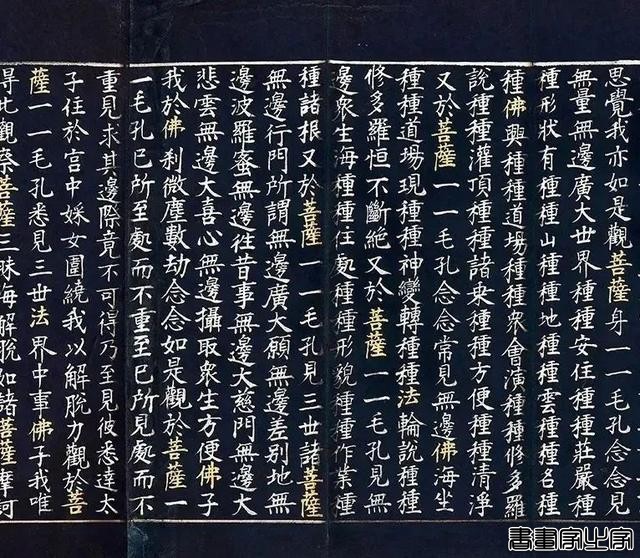 思覺我亦如是觀菩薩身一一毛孔念念見
無量無邊廣大世界種種安住種種莊嚴種
種形狀有種種山種種地種種雲種種名種
種佛興種種道場種種眾會演種種修多羅
說種種灌頂種種諸乘種種方便種種清淨
又於菩薩一一毛孔念念常見無邊佛海坐
種種道場現種種神變轉種種法輪說種種
修多羅恒不斷絕又於菩薩一一毛孔見無
邊眾生海種種住處種種形貌種種作業種
種諸根又於菩薩一一毛孔見三世諸菩薩
無邊行門所謂無邊廣大願無邊差別地無
邊波羅蜜無邊往昔事無邊大慈門無邊大
悲雲無邊大喜心無邊攝取眾生方便佛子
我於佛剎微塵數劫念念如是觀於菩薩一
一毛孔已所至處而不重至已所見處而不
重見求其邊際竟不可得乃至見彼悉達太
子住於宮中婇女圍繞我以解脫力觀於菩
薩一一毛孔悉見三世法界中事佛子我唯
得此觀察菩薩三昧海解脫如諸菩薩摩訶
書畫家之家